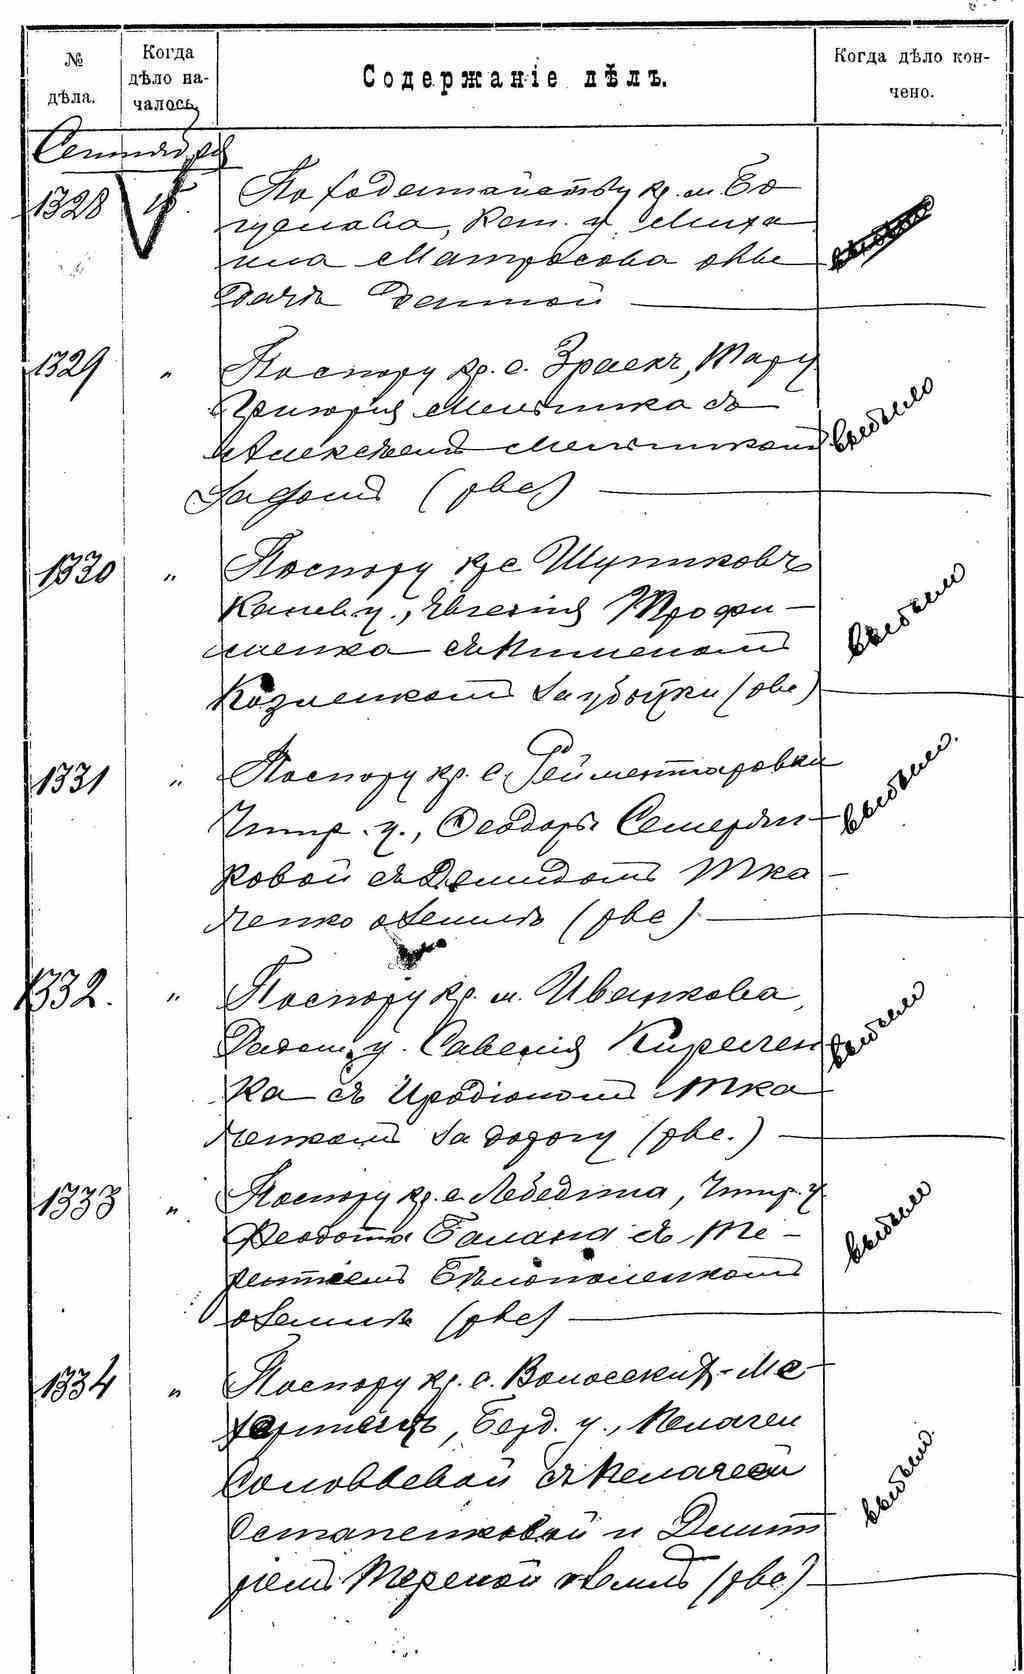 № дѣла.
Когда дѣло началось.
Содержаніе дѣлъ.
Когда дѣло кончено.
Сентября
1328 15. По ходатайству кр. м. Бо
гуслава, Кан. у. Миха
ила Матросова о вы
дачѣ данной
выбыло
1329 " По спору кр. с. Зраекъ, Тар. у.
Григорія Мельника съ
Алексѣемъ Мельникомъ
за домъ (рвс)
выбыло
1330 " По спору кр с Шупиковъ
Канев. у., Евгенія Трофи-
менка съ Пименомъ
Козленкомъ за убытки (рвс)
выбыло
1331 " По спору кр. с. Рейментаровки
Чигир. у., Ѳеодоры Семеряк-
ковой съ Демидомъ Тка-
ченко о землѣ (рвс)
выбыло.
1332. " По спору кр. м. Иванкова,
Радом. у. Савелія Киричен
ка съ Иродіономъ Тка
ченкомъ за дорогу (рвс.)
выбыло
1333 " По спору кр. с. Лебедина, Чигир. у.
Ѳеодота Галана съ Те-
рентіемъ Бѣлополенкомъ
о землѣ (рвс)
выбыло
1334 " По спору кр. с. Волосскихъ-Ме-
херинецъ, Берд. у., Пелагеи
Соловьевой съ Пелагеей
Остапенковой и Дмит
ріемъ о землѣ (рвс)
выбыло.